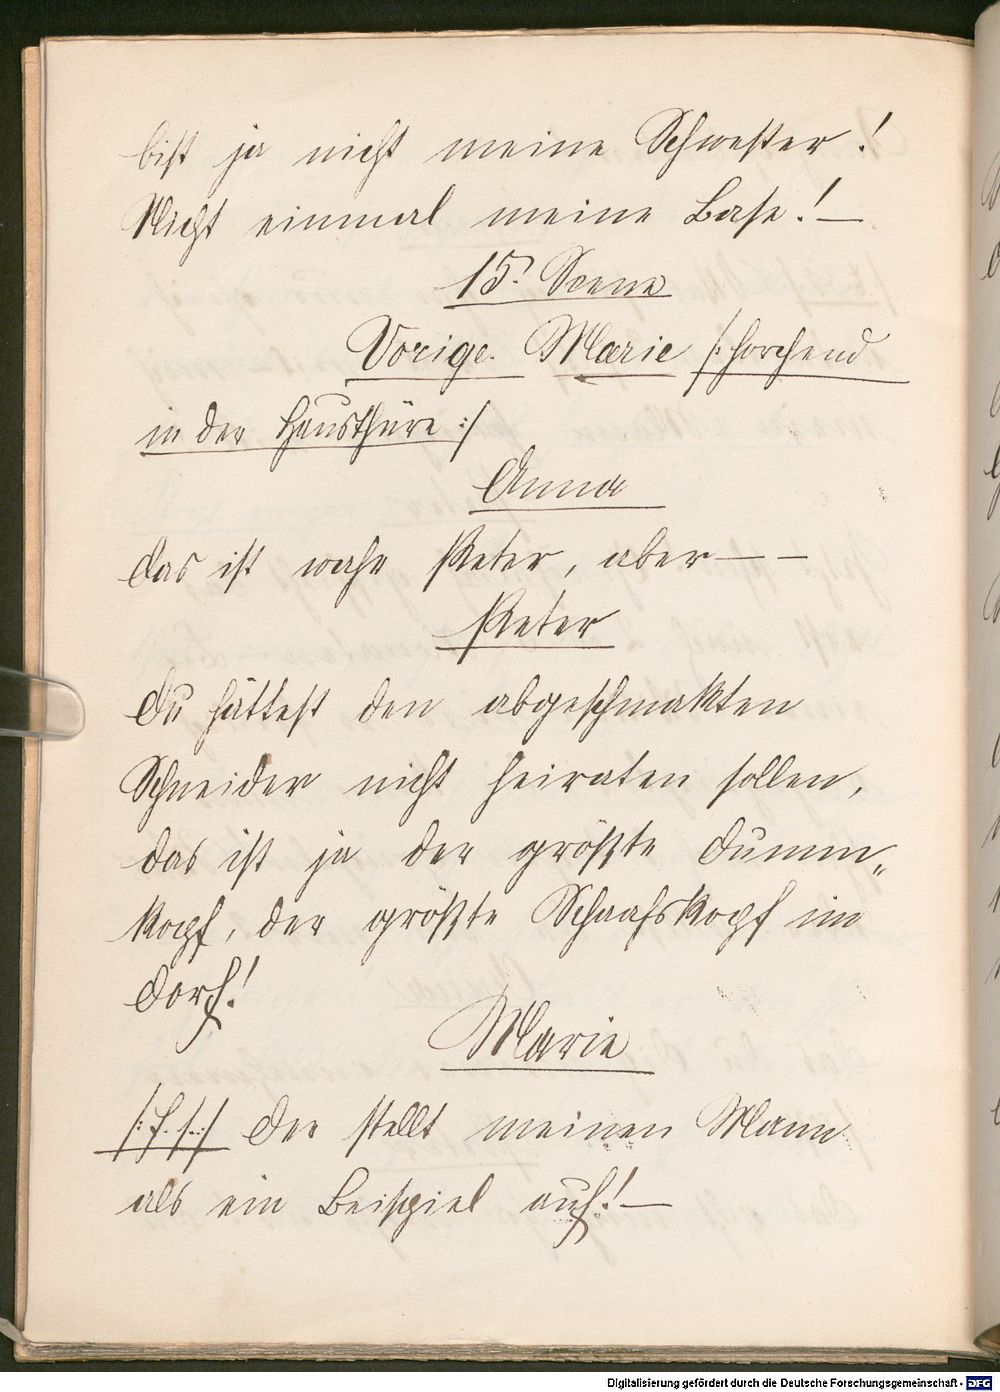 bist ja nicht meine Schwester!
Nicht einmal meine Base! —
15. Scene
Vorige. Marie /: horchend
in der Hausthüre :/
Anna
Das ist wahr Peter, aber — —
Peter
Du hättest den abgeschmakten
Schneider nicht heiraten sollen,
das ist ja der größte Dumm„
kopf, der größte Schaafskopf im
Dorf!
Marie
/: f. s. :/ Der stellt meinen Mann
als ein Beispiel auf! —
Digitalisierung gefördert durch die Deutsche Forschungsgemeinschaft - DFG